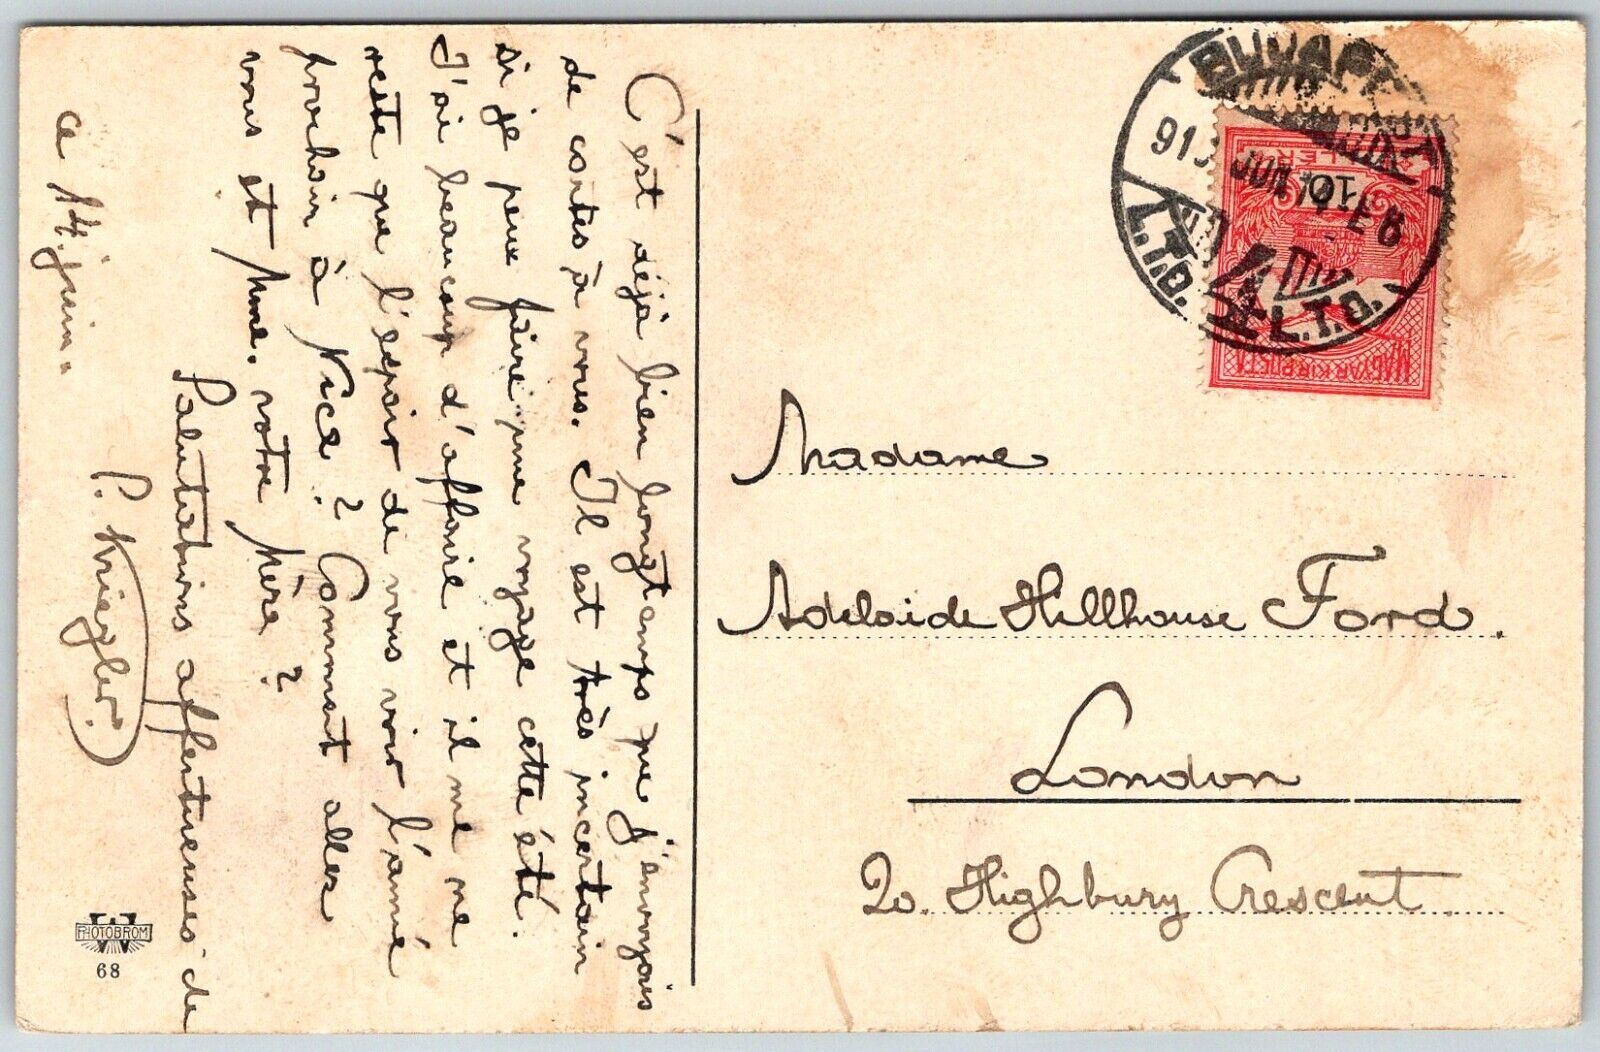 C'est déjà bien longtemps que j'envoyais
de cartes à vous. Il est très incertain
si je peux faire une voyage cette été.
J'ai beaucoup d'affaire et il me ne
reste que l'espoir de vous voir l'anné
prochain à Nice? Comment allez
vous et Mme. votre Mère?
Salutations affectueuses de
P. Kriegler.
ce 14. juin.
Madame
Adelaide Hillhouse Ford.
London
20. Highbury Crescent.
BUDAPEST
L.T.G.
L.T.G.
10
MAGYAR KIR. POSTA
PHOTOBROM
68